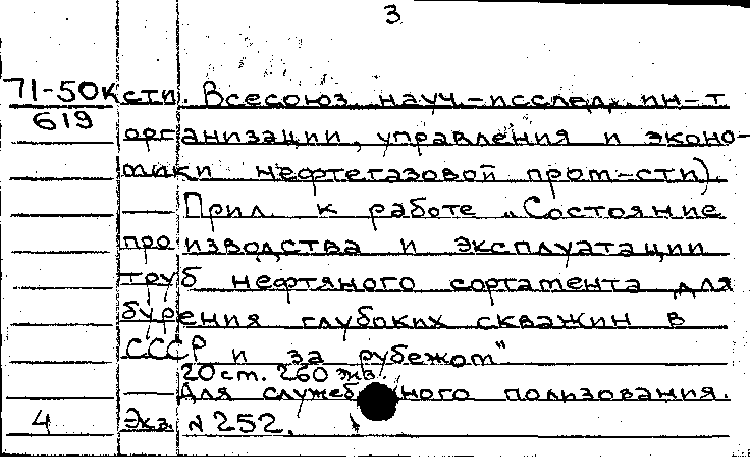 3
71-50к сти. Всесоюз. науч-исслед. ин-т
619 организации, управления и эконо-
мики нефтегазовой пром-сти).
Прил. к работе „Состояние
производства и эксплуатации
труб нефтяного сортамента для
бурения глубоких скважин в
СССР и за рубежом".
20 см. 260 экз.
Для служебного пользования.
4 Экз. № 252.